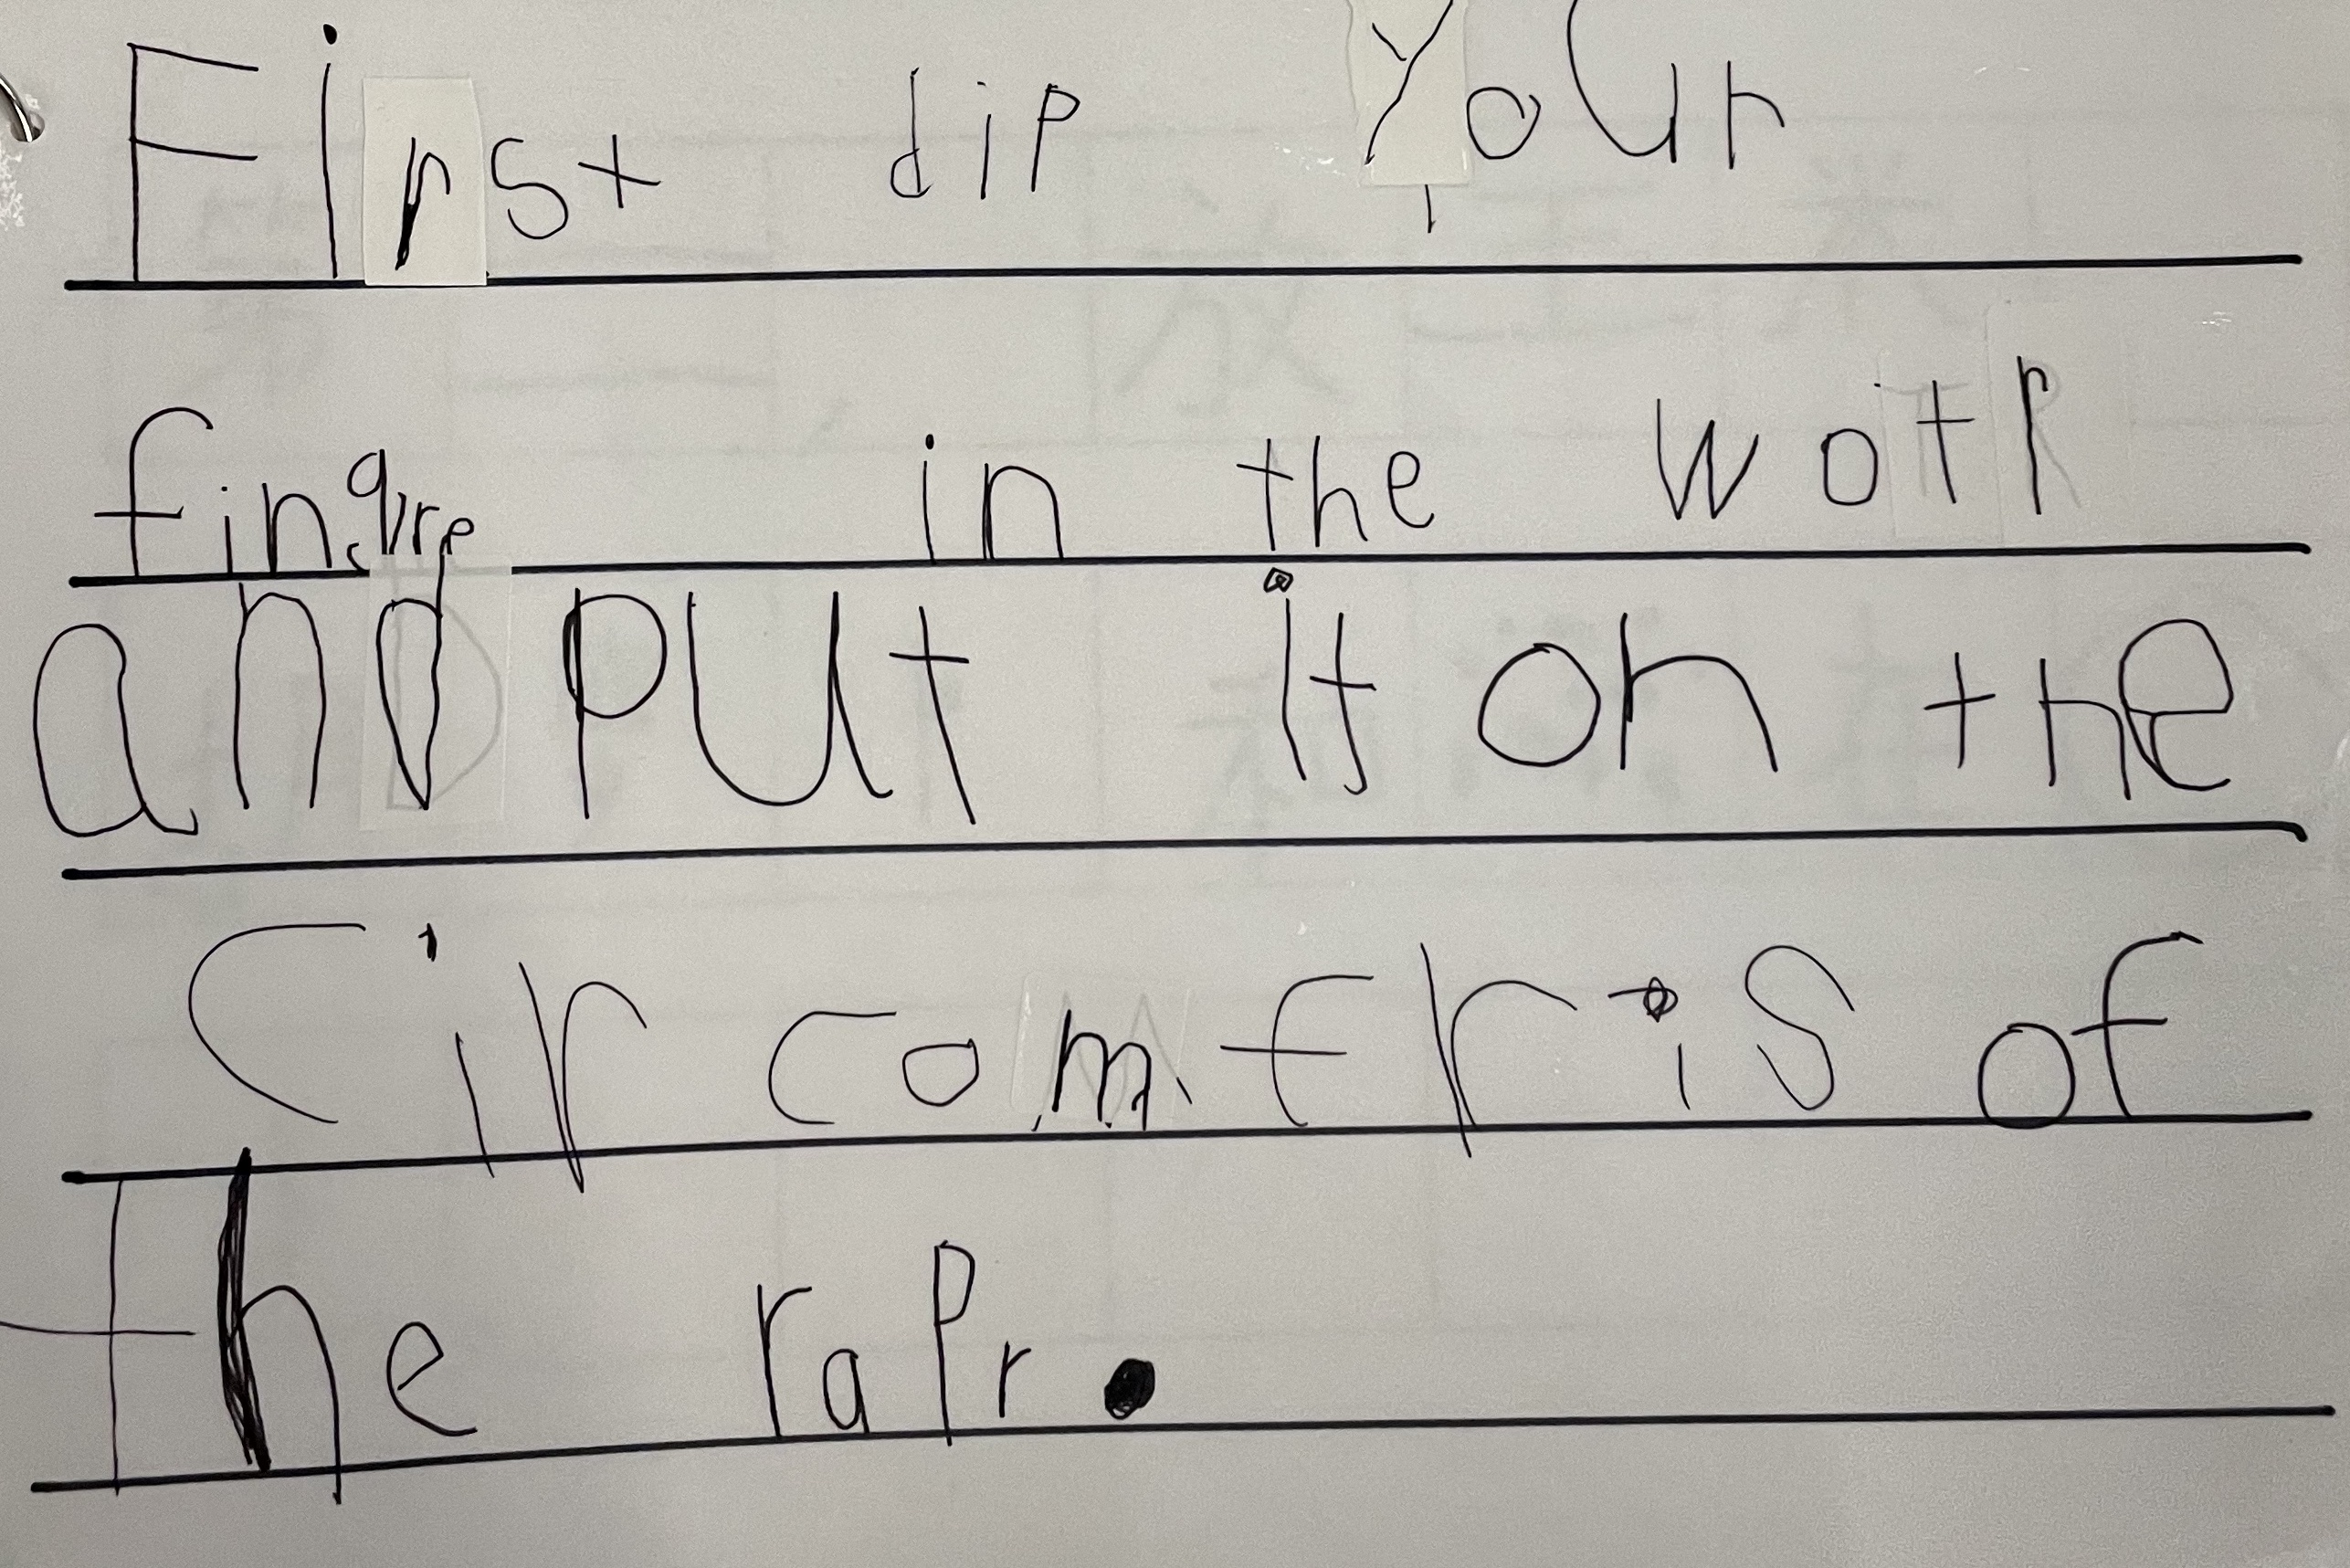 First dip your
fingre in the wotr
and put it on the
Circomfris of
the rapr.